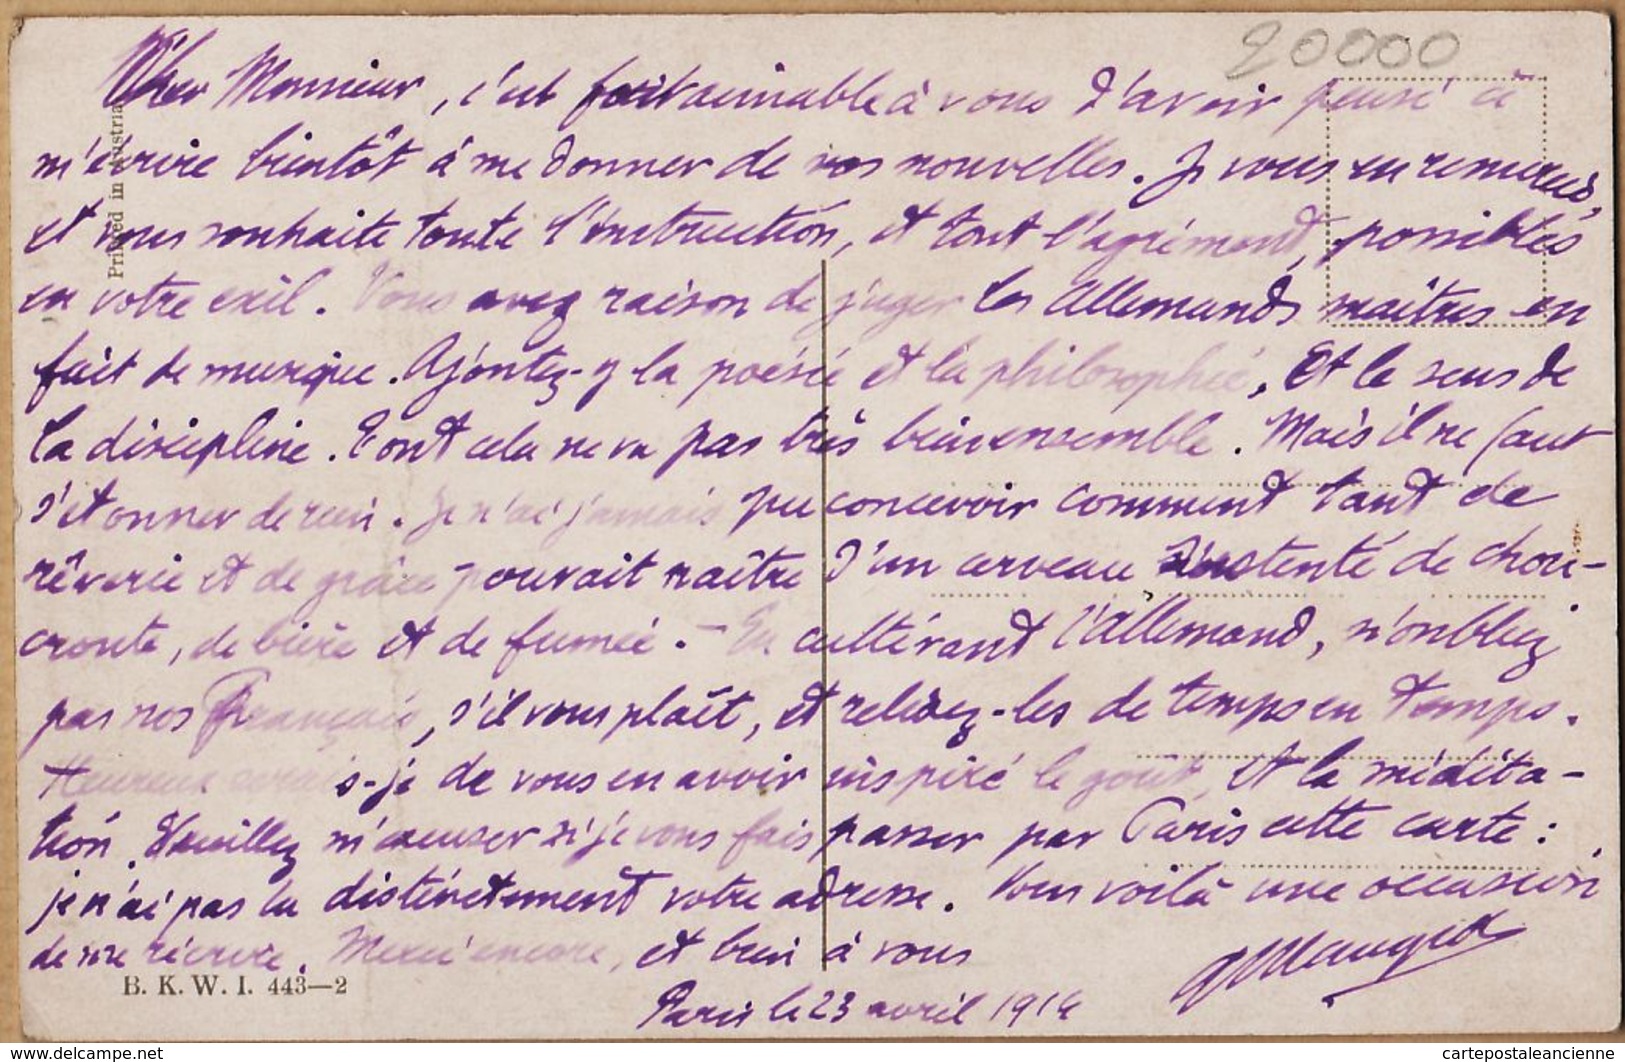 20000
Cher Monsieur, c'est fort aimable à vous d'avoir pensé à
m'écrire bientôt à me donner de vos nouvelles. Je vous en remercie,
et vous souhaite toute l'instruction, et tout l'agrément, possibles
en votre exil. Vous avez raison de juger les Allemands maîtres en
fait de musique. Ajoutez-y la poésie et la philosophie, Et le sens de
la discipline. Tout cela ne va pas très bien ensemble. Mais il ne faut
s'étonner de rien. Je n'ai jamais pu concevoir comment tant de
rêverie et de grâce pouvait naître d'un cerveau sustenté de chou-
croute, de bière et de fumée. - En cultivant l'Allemand, n'oubliez
pas nos Français, s'il vous plaît, et relisez-les de temps en temps.
Heureux serais-je de vous en avoir inspiré le goût, et la médita-
tion. Veuillez m'excuser si je vous fais passer par Paris cette carte :
je n'ai pas lu distinctement votre adresse. Vous voilà une occasion
de me récrire. Merci encore, et bien à vous
Paris le 23 avril 1914
Printed in Austria
B. K. W. I. 443—2
www.delcampe.net
cartepostaleancienne